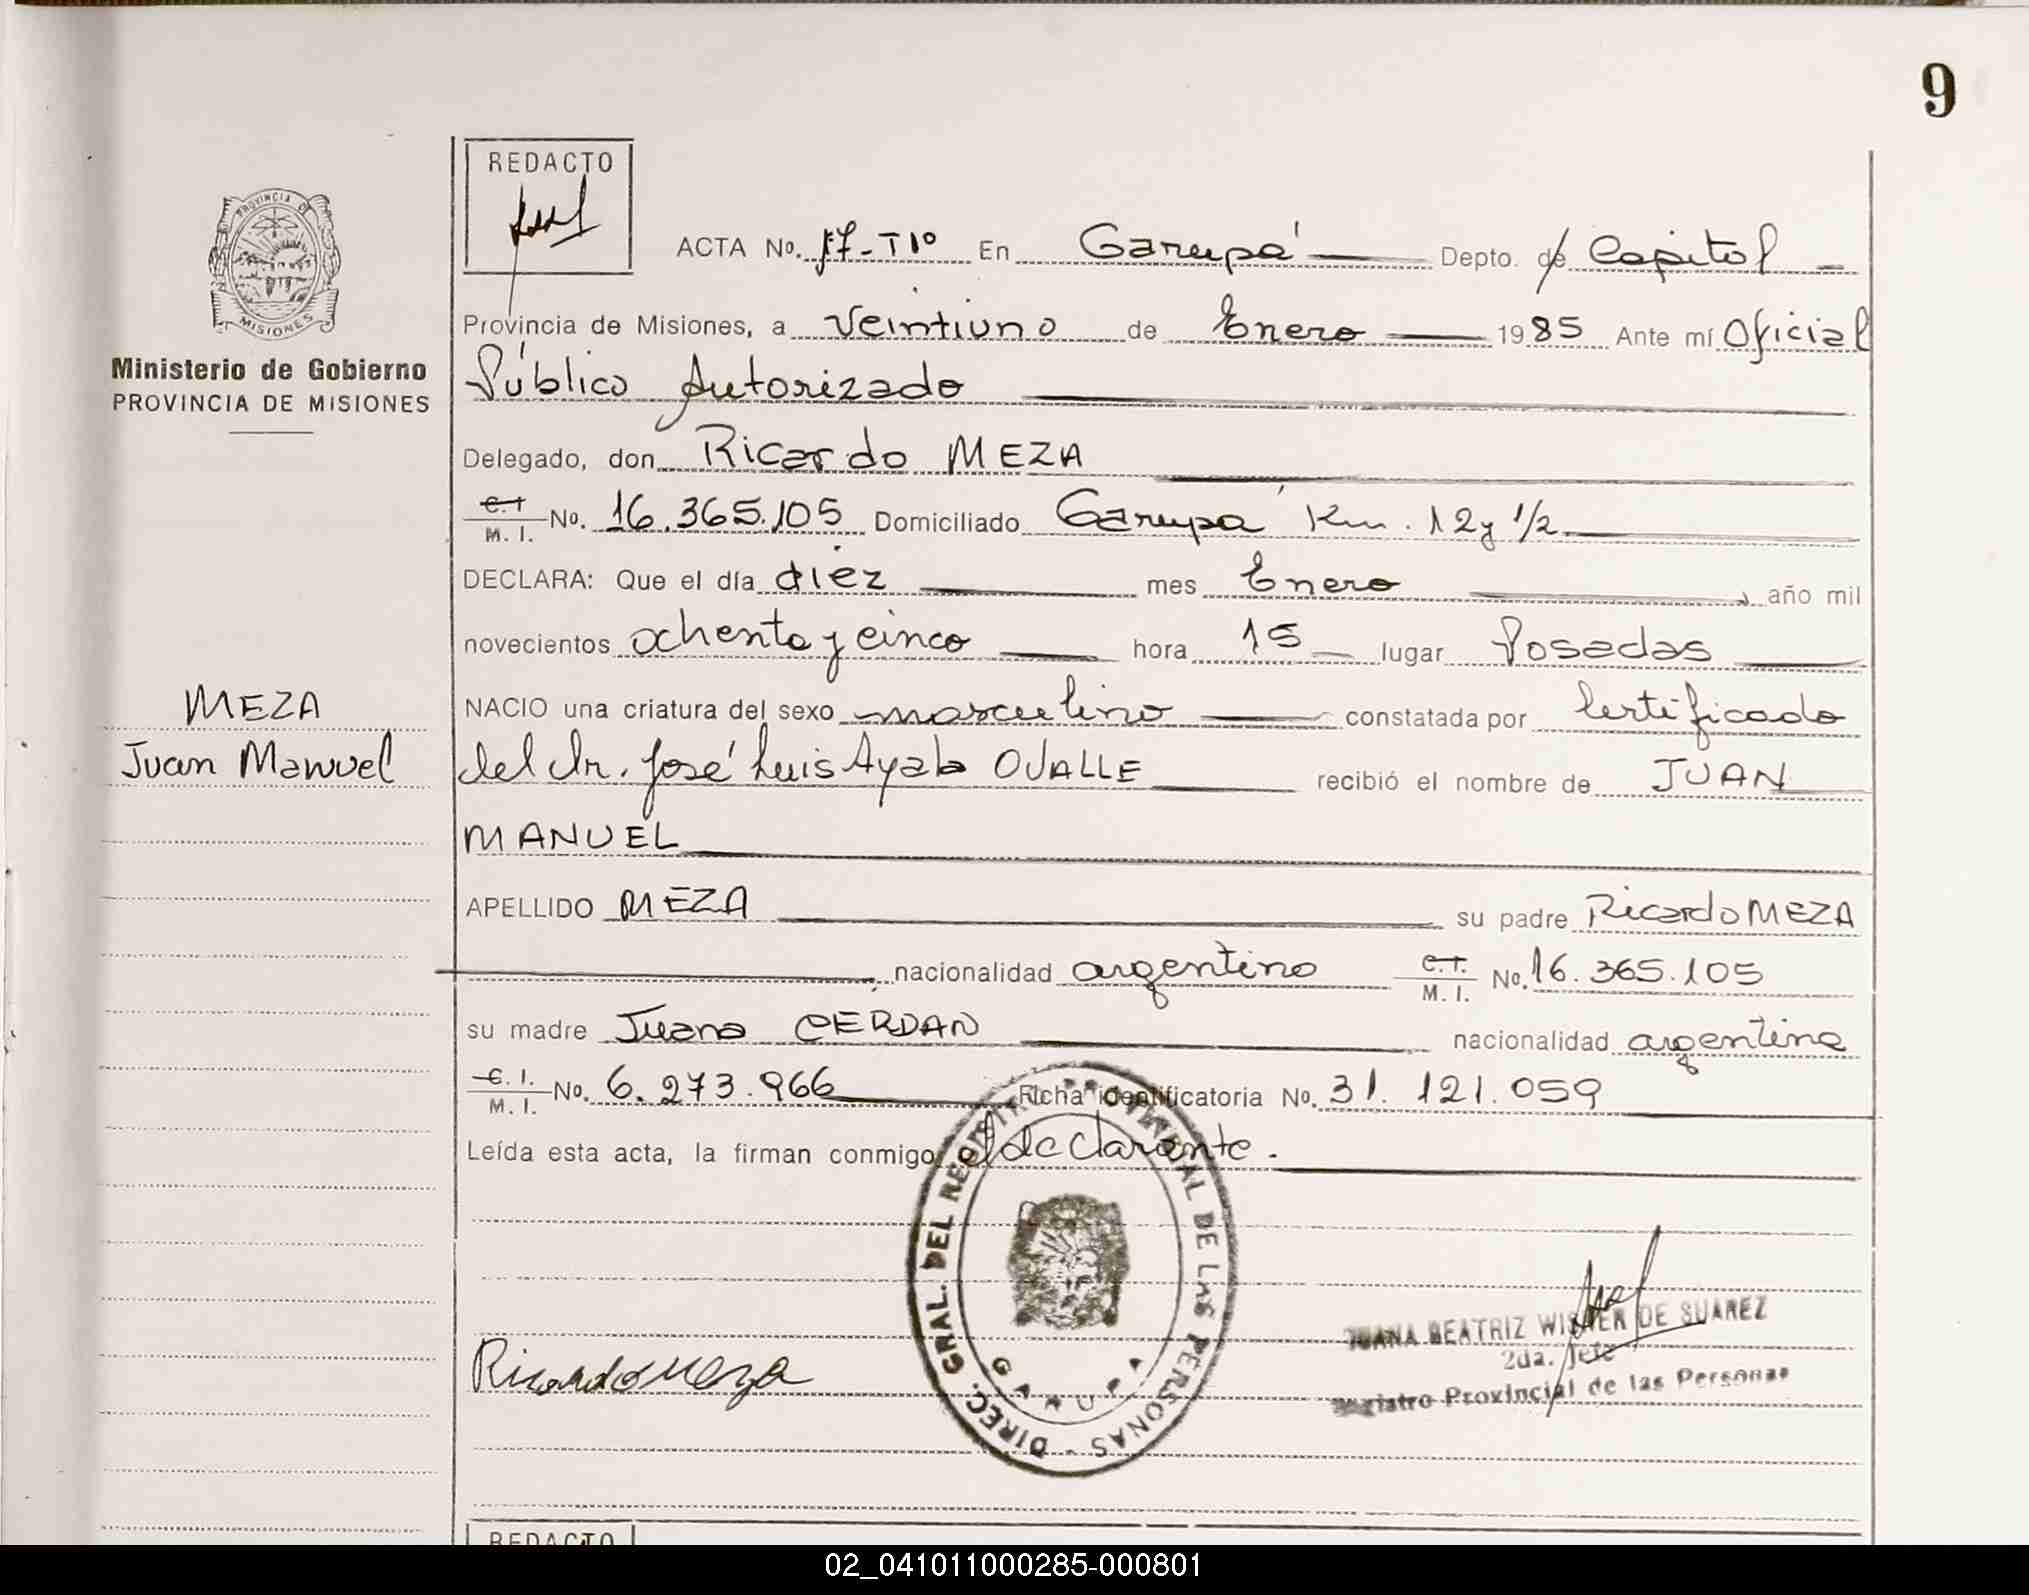 9
REDACTO
PROVINCIA DE
MISIONES
Ministerio de Gobierno
PROVINCIA DE MISIONES
ACTA No. 17-TIº En Garupá Depto. de Capital
Provincia de Misiones, a Veintiuno de Enero 1985 Ante mí Oficial
Público Autorizado
Delegado, don Ricardo MEZA
C.I M. I. No. 16.365.105 Domiciliado Garupá Km. 12 y 1/2
DECLARA: Que el día diez mes Enero, año mil
novecientos ochenta y cinco hora 15 lugar Posadas
MEZA
NACIO una criatura del sexo masculino constatada por Certificado
Juan Manuel
del dr. José Luis Ayala OVALLE recibió el nombre de JUAN
MANUEL
APELLIDO MEZA su padre Ricardo MEZA
, nacionalidad argentino C.I. M. I. No. 16.365.105
su madre Juana CERDAN nacionalidad argentina
C. I. M. I. No. 6.273.966 Ficha identificatoria No. 31.121.059
Leída esta acta, la firman conmigo el declarante.
DIREC. GRAL. DEL REGISTRO PROVINCIAL DE LAS PERSONAS -
GARUPA
Ricardo Meza
JUANA BEATRIZ WISNER DE SUAREZ
2da. Jefe
Registro Provincial de las Personas
REDACTO
02_041011000285-000801